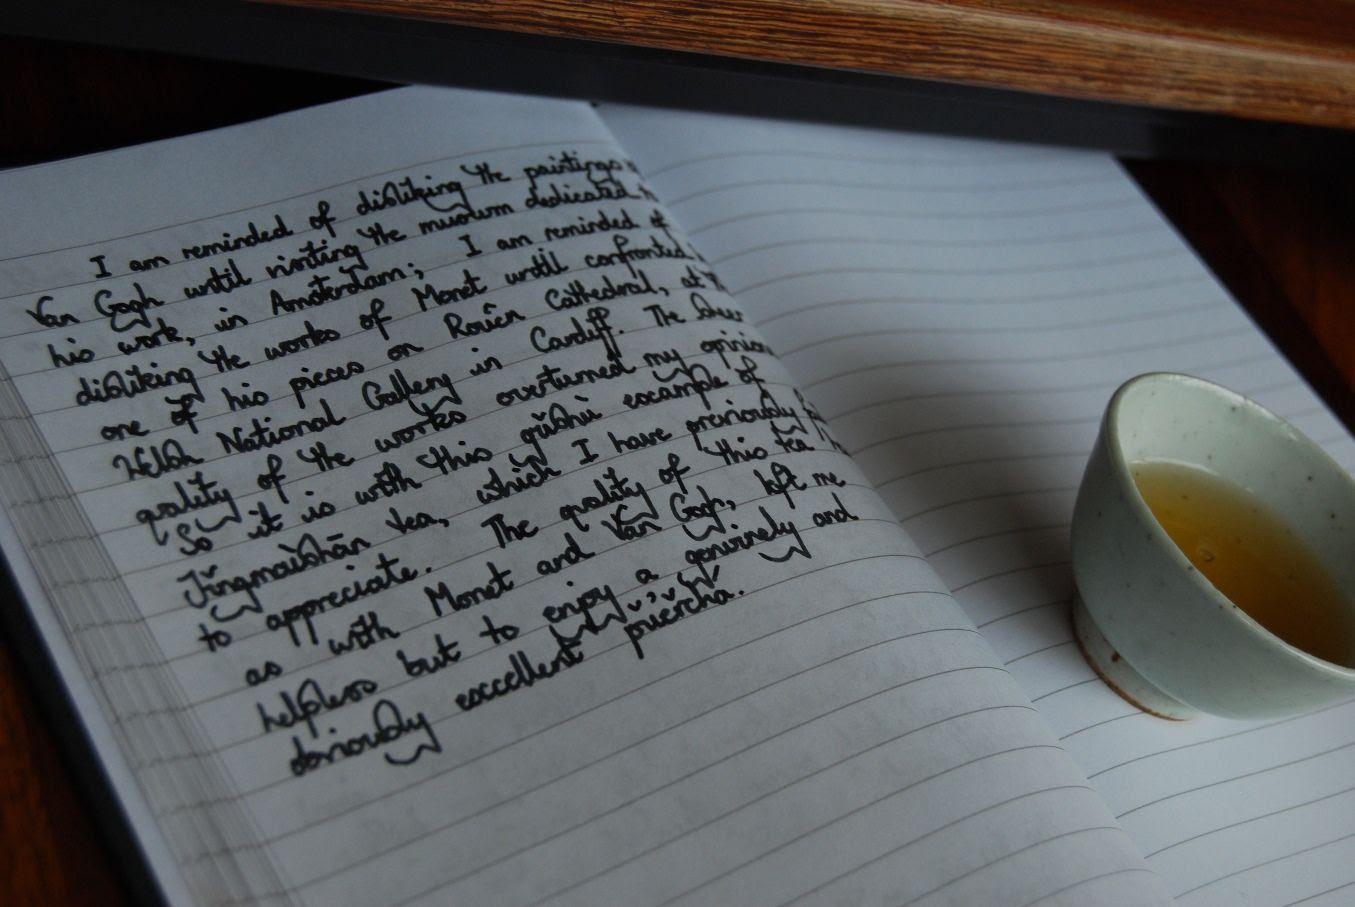 I am reminded of disliking the paintings
Van Gogh until visiting the museum dedicated
his work, in Amsterdam; I am reminded of
disliking the works of Monet until confronted
one of his pieces on Rouen Cathedral, at
Welsh National Gallery in Cardiff. The sheer
quality of the works overturned my opinion
So it is with this gǔshù example of
Jǐngmàishān tea, which I have previously
to appreciate. The quality of this tea
as with Monet and Van Gogh, left me
helpless but to enjoy a genuinely and
obviously excellent pǔ'ěrchá.